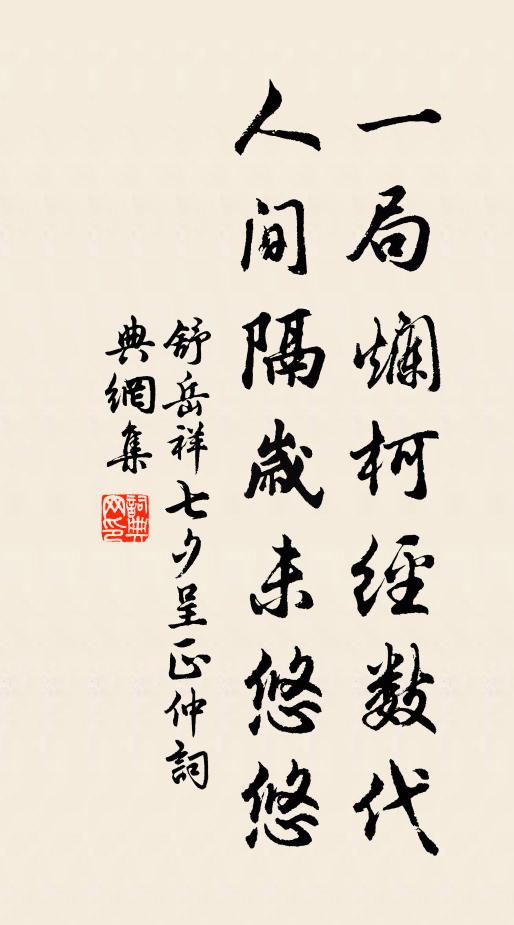 一局爛柯經數代
人間隔歲未悠悠
舒岳祥七夕呈正仲詞
典網集
詞典
网印